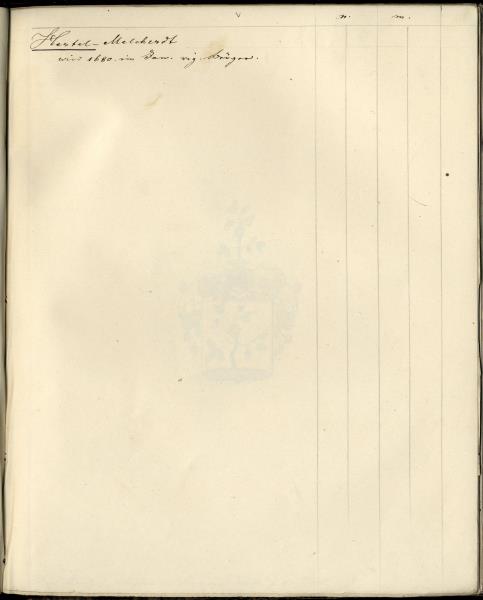 v n. m.
Hertel-Melcherdt
wird 1680. im Jan. rig. Bürger.